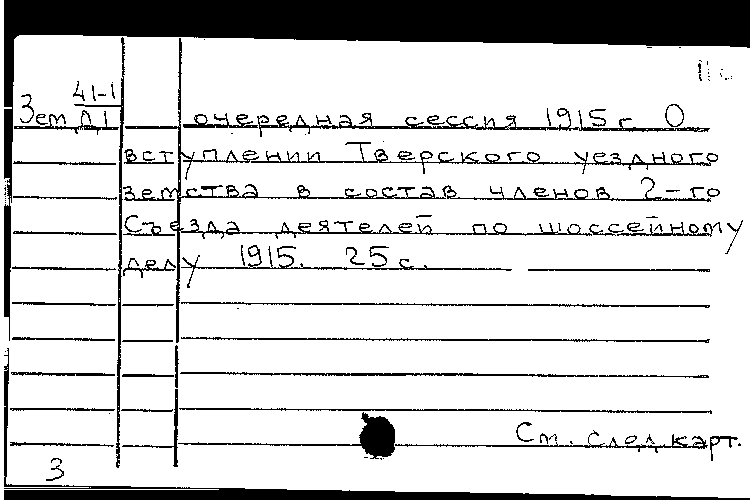 41-1
Зем Л1 очередная сессия 1915 г О
вступлении Тверского уездного
земства в состав членов 2-го
Съезда деятелей по шоссейному
делу 1915. 25 с.
См. след карт.
3